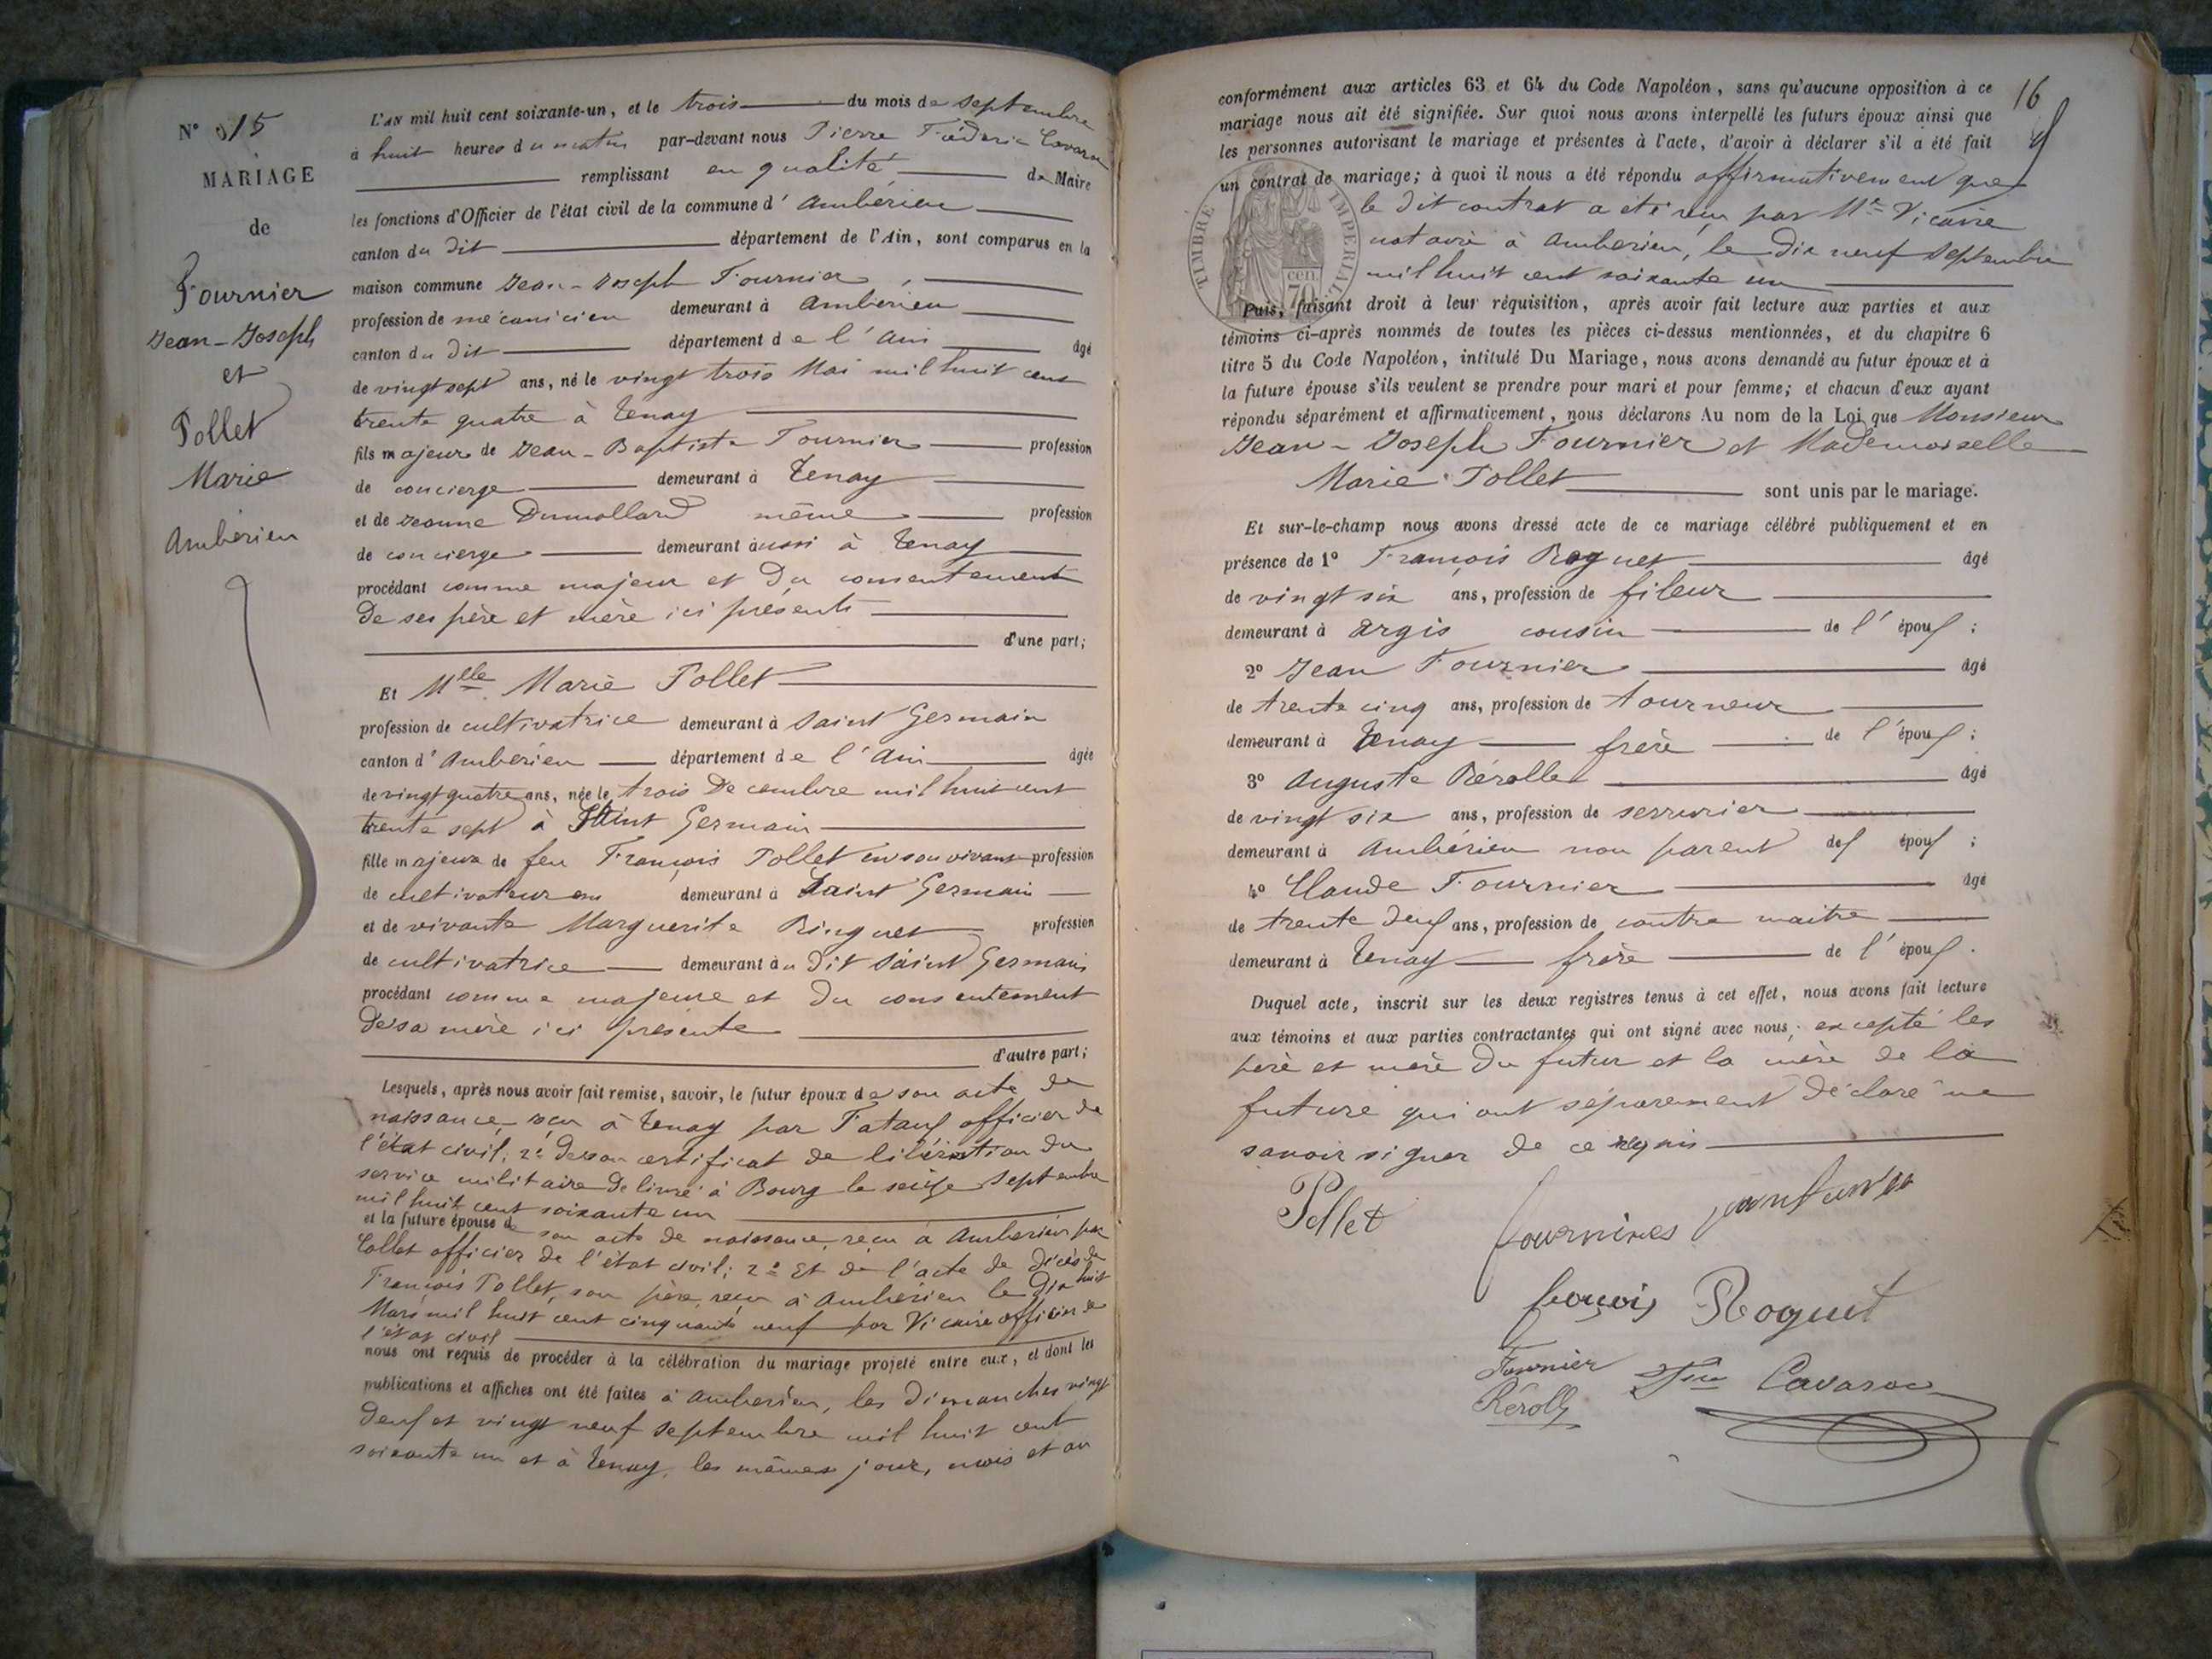 N° 15
MARIAGE
de
Fournier
Jean-Joseph
et
Pollet
Marie
Ambérieu
L'AN mil huit cent soixante-un, et le trois du mois de septembre
à huit heures du matin par-devant nous Pierre Fréderic Cavaroc
remplissant en qualité de Maire
les fonctions d'Officier de l'état civil de la commune d'Ambérieu
canton du dit département de l'Ain, sont comparus en la
maison commune Jean-Joseph Fournier
profession de mécanicien demeurant à Ambérieu
canton du dit département de l'Ain âgé
de vingt sept ans, né le vingt trois Mai mil huit cent
trente quatre à Tenay
fils majeur de Jean-Baptiste Fournier profession
de concierge demeurant à Tenay
et de Jeanne Dumollard même profession
de concierge demeurant aussi à Tenay
procédant comme majeur et du consentement
de ses père et mère ici présents
d'une part;
Et Mlle Marie Pollet
profession de cultivatrice demeurant à Saint Germain
canton d'Ambérieu département de l'Ain âgée
de vingt quatre ans, née le trois Décembre mil huit cent
trente sept à Saint Germain
fille majeure de feu François Pollet en son vivant profession
de cultivateur demeurant à Saint Germain
et de vivante Marguerite Ringuet profession
de cultivatrice demeurant au dit Saint Germain
procédant comme majeure et du consentement
de sa mère ici présente
d'autre part;
Lesquels, après nous avoir fait remise, savoir, le futur époux de son acte de
naissance, reçu à Tenay par officier de
l'état civil; 2° de son certificat de libération du
service militaire délivré à Bourg le seize Septembre
mil huit cent soixante un
et la future épouse de son acte de naissance, reçu à Ambérieu par
Collet officier de l'état civil; 2° Et de l'acte de décès de
François Pollet, son père, reçu à Ambérieu le dix huit
Mars mil huit cent cinquante neuf par Vicaire officier de
l'état civil
nous ont requis de procéder à la célébration du mariage projeté entre eux, et dont les
publications et affiches ont été faites à Ambérieu, les dimanches vingt
deux et vingt neuf septembre mil huit cent
soixante un et à Tenay, les mêmes jour, mois et an
16
conformément aux articles 63 et 64 du Code Napoléon, sans qu'aucune opposition à ce
mariage nous ait été signifiée. Sur quoi nous avons interpellé les futurs époux ainsi que
les personnes autorisant le mariage et présentes à l'acte, d'avoir à déclarer s'il a été fait
un contrat de mariage; à quoi il nous a été répondu affirmativement que
le dit contrat a été reçu par Me Vicaire
notaire à Ambérieu, le dix neuf Septembre
mil huit cent soixante un
TIMBRE IMPERIAL
70 cen
Puis, faisant droit à leur réquisition, après avoir fait lecture aux parties et aux
témoins ci-après nommés de toutes les pièces ci-dessus mentionnées, et du chapitre 6
titre 5 du Code Napoléon, intitulé Du Mariage, nous avons demandé au futur époux et à
la future épouse s'ils veulent se prendre pour mari et pour femme; et chacun d'eux ayant
répondu séparément et affirmativement, nous déclarons Au nom de la Loi que Monsieur
Jean-Joseph Fournier et Mademoiselle
Marie Pollet sont unis par le mariage.
Et sur-le-champ nous avons dressé acte de ce mariage célébré publiquement et en
présence de 1° François Roguet âgé
de vingt six ans, profession de fileur
demeurant à Argis cousin de l'époux;
2° Jean Fournier âgé
de trente cinq ans, profession de tourneur
demeurant à Tenay frère de l'époux;
3° Auguste Pérolle âgé
de vingt six ans, profession de serrurier
demeurant à Ambérieu non parent des époux;
4° Claude Fournier âgé
de trente deux ans, profession de contre maitre
demeurant à Tenay frère de l'époux.
Duquel acte, inscrit sur les deux registres tenus à cet effet, nous avons fait lecture
aux témoins et aux parties contractantes qui ont signé avec nous; excepté les
père et mère du futur et la mère de la
future qui ont séparement déclaré ne
savoir signer de ce requis
Pollet
fournires
Roguet
Fournier Cavaroc